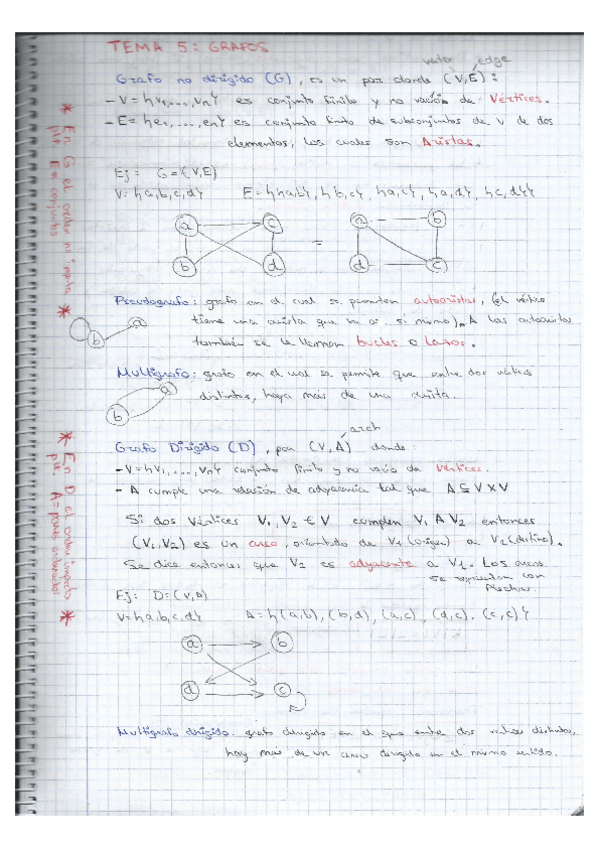 TEMA 5: GRAFOS
vertex edge
Grafo no dirigido (G), es un par donde (V,E):
- V = {v1,...,vn} es conjunto finito y no vacío de Vértices.
- E = {e1,...,en} es conjunto finito de subconjuntos de V de dos
elementos, los cuales son Aristas.
* En G el orden no importa *
pk. E = conjuntos
Ej: G={V,E}
V={a,b,c,d} E={{a,b},{b,c},{a,c},{a,d},{c,d}}
a c = a b
b d d c
Pseudografo: grafo en el cual se permiten autoaristas, (el vértice
tiene una arista que va a si mismo). A las autoaristas
también se le llaman bucles o lazos.
b a
Multigrafo: grafo en el cual se permite que entre dos vértices
distintos, haya más de una arista.
a
b
arch
Grafo Dirigido (D), par (V,A) donde:
- V={V1,...,Vn} conjunto finito y no vacio de Vértices.
- A cumple una relación de adyacencia tal que A⊆V×V
* En D el orden importa *
pk. A = pares ordenados
Si dos vértices V1,V2 ∈ V cumplen V1 A V2 entonces
(V1,V2) es un arco, orientado de V1 (origen) a V2 (destino).
Se dice entonces que V2 es adyacente a V1. Los arcos
se representan con
flechas.
Ej: D=(V,A)
V={a,b,c,d} A={(a,b),(b,d),(a,c),(d,c),(c,c)}
a b
d c
Multigrafo dirigido: grafo dirigido en el que entre dos vertices distintos,
hay mas de un arco dirigido en el mismo sentido.